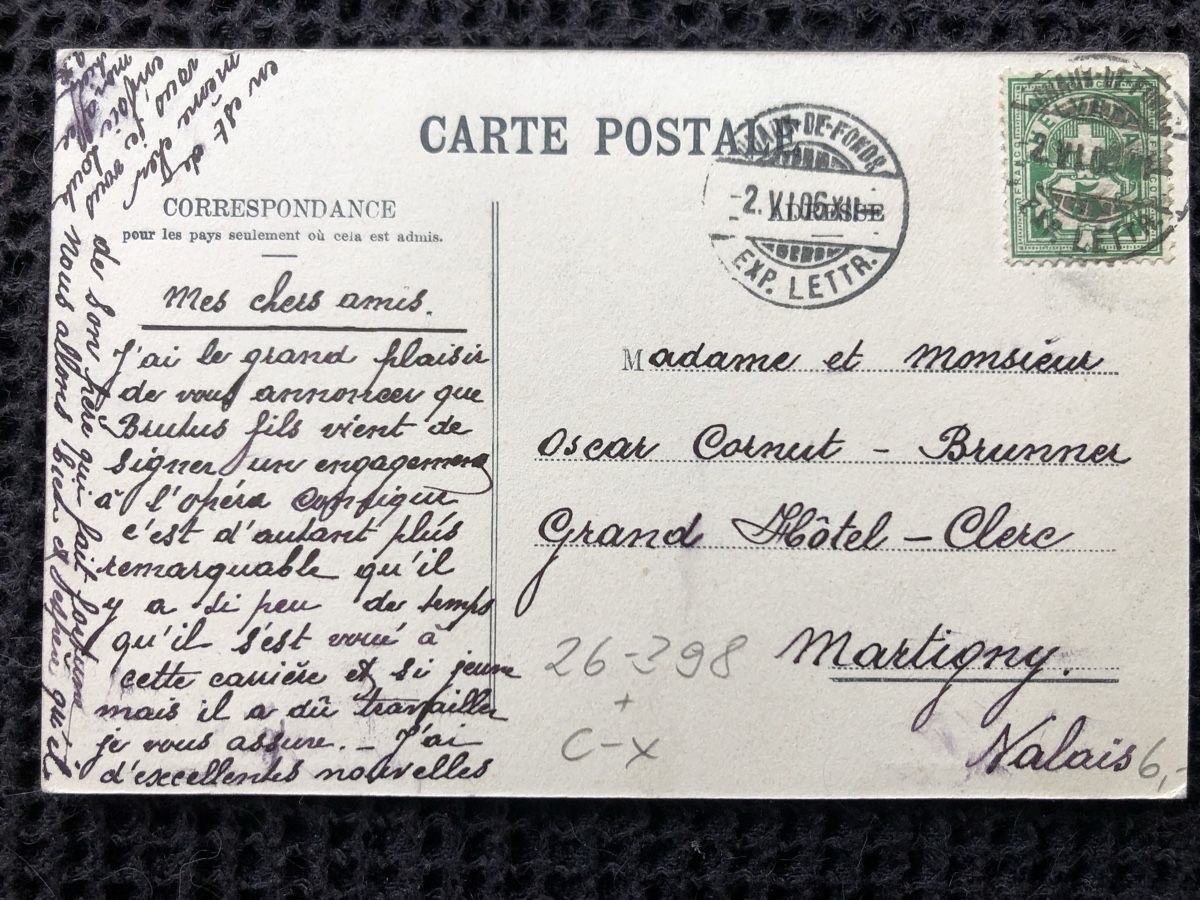 CARTE POSTALE
CORRESPONDANCE
pour les pays seulement où cela est admis.
ADRESSE
CHAUX-DE-FONDS
-2.VI.06 XII-
EXP. LETTR.
CHAUX-DE-FONDS
2.VI.06
EXP. LETTR.
HELVETIA
FRANCO
Mes chers amis.
J'ai le grand plaisir
de vous annoncer que
Brutus fils vient de
signer un engagement
à l'opéra comique
c'est d'autant plus
remarquable qu'il
y a si peu de temps
qu'il s'est voué à
cette carrière et si jeune
mais il a dû travailler
je vous assure. - J'ai
d'excellentes nouvelles
de son frère qui fait fortune
nous allons bien et j'espère qu'il
en est de
même chez
vous je vous
envoie tout
mon affec
Madame et Monsieur
Oscar Cornut - Brunner
Grand Hôtel - Clerc
Martigny.
Valais
26-398
+
C-X
6,-